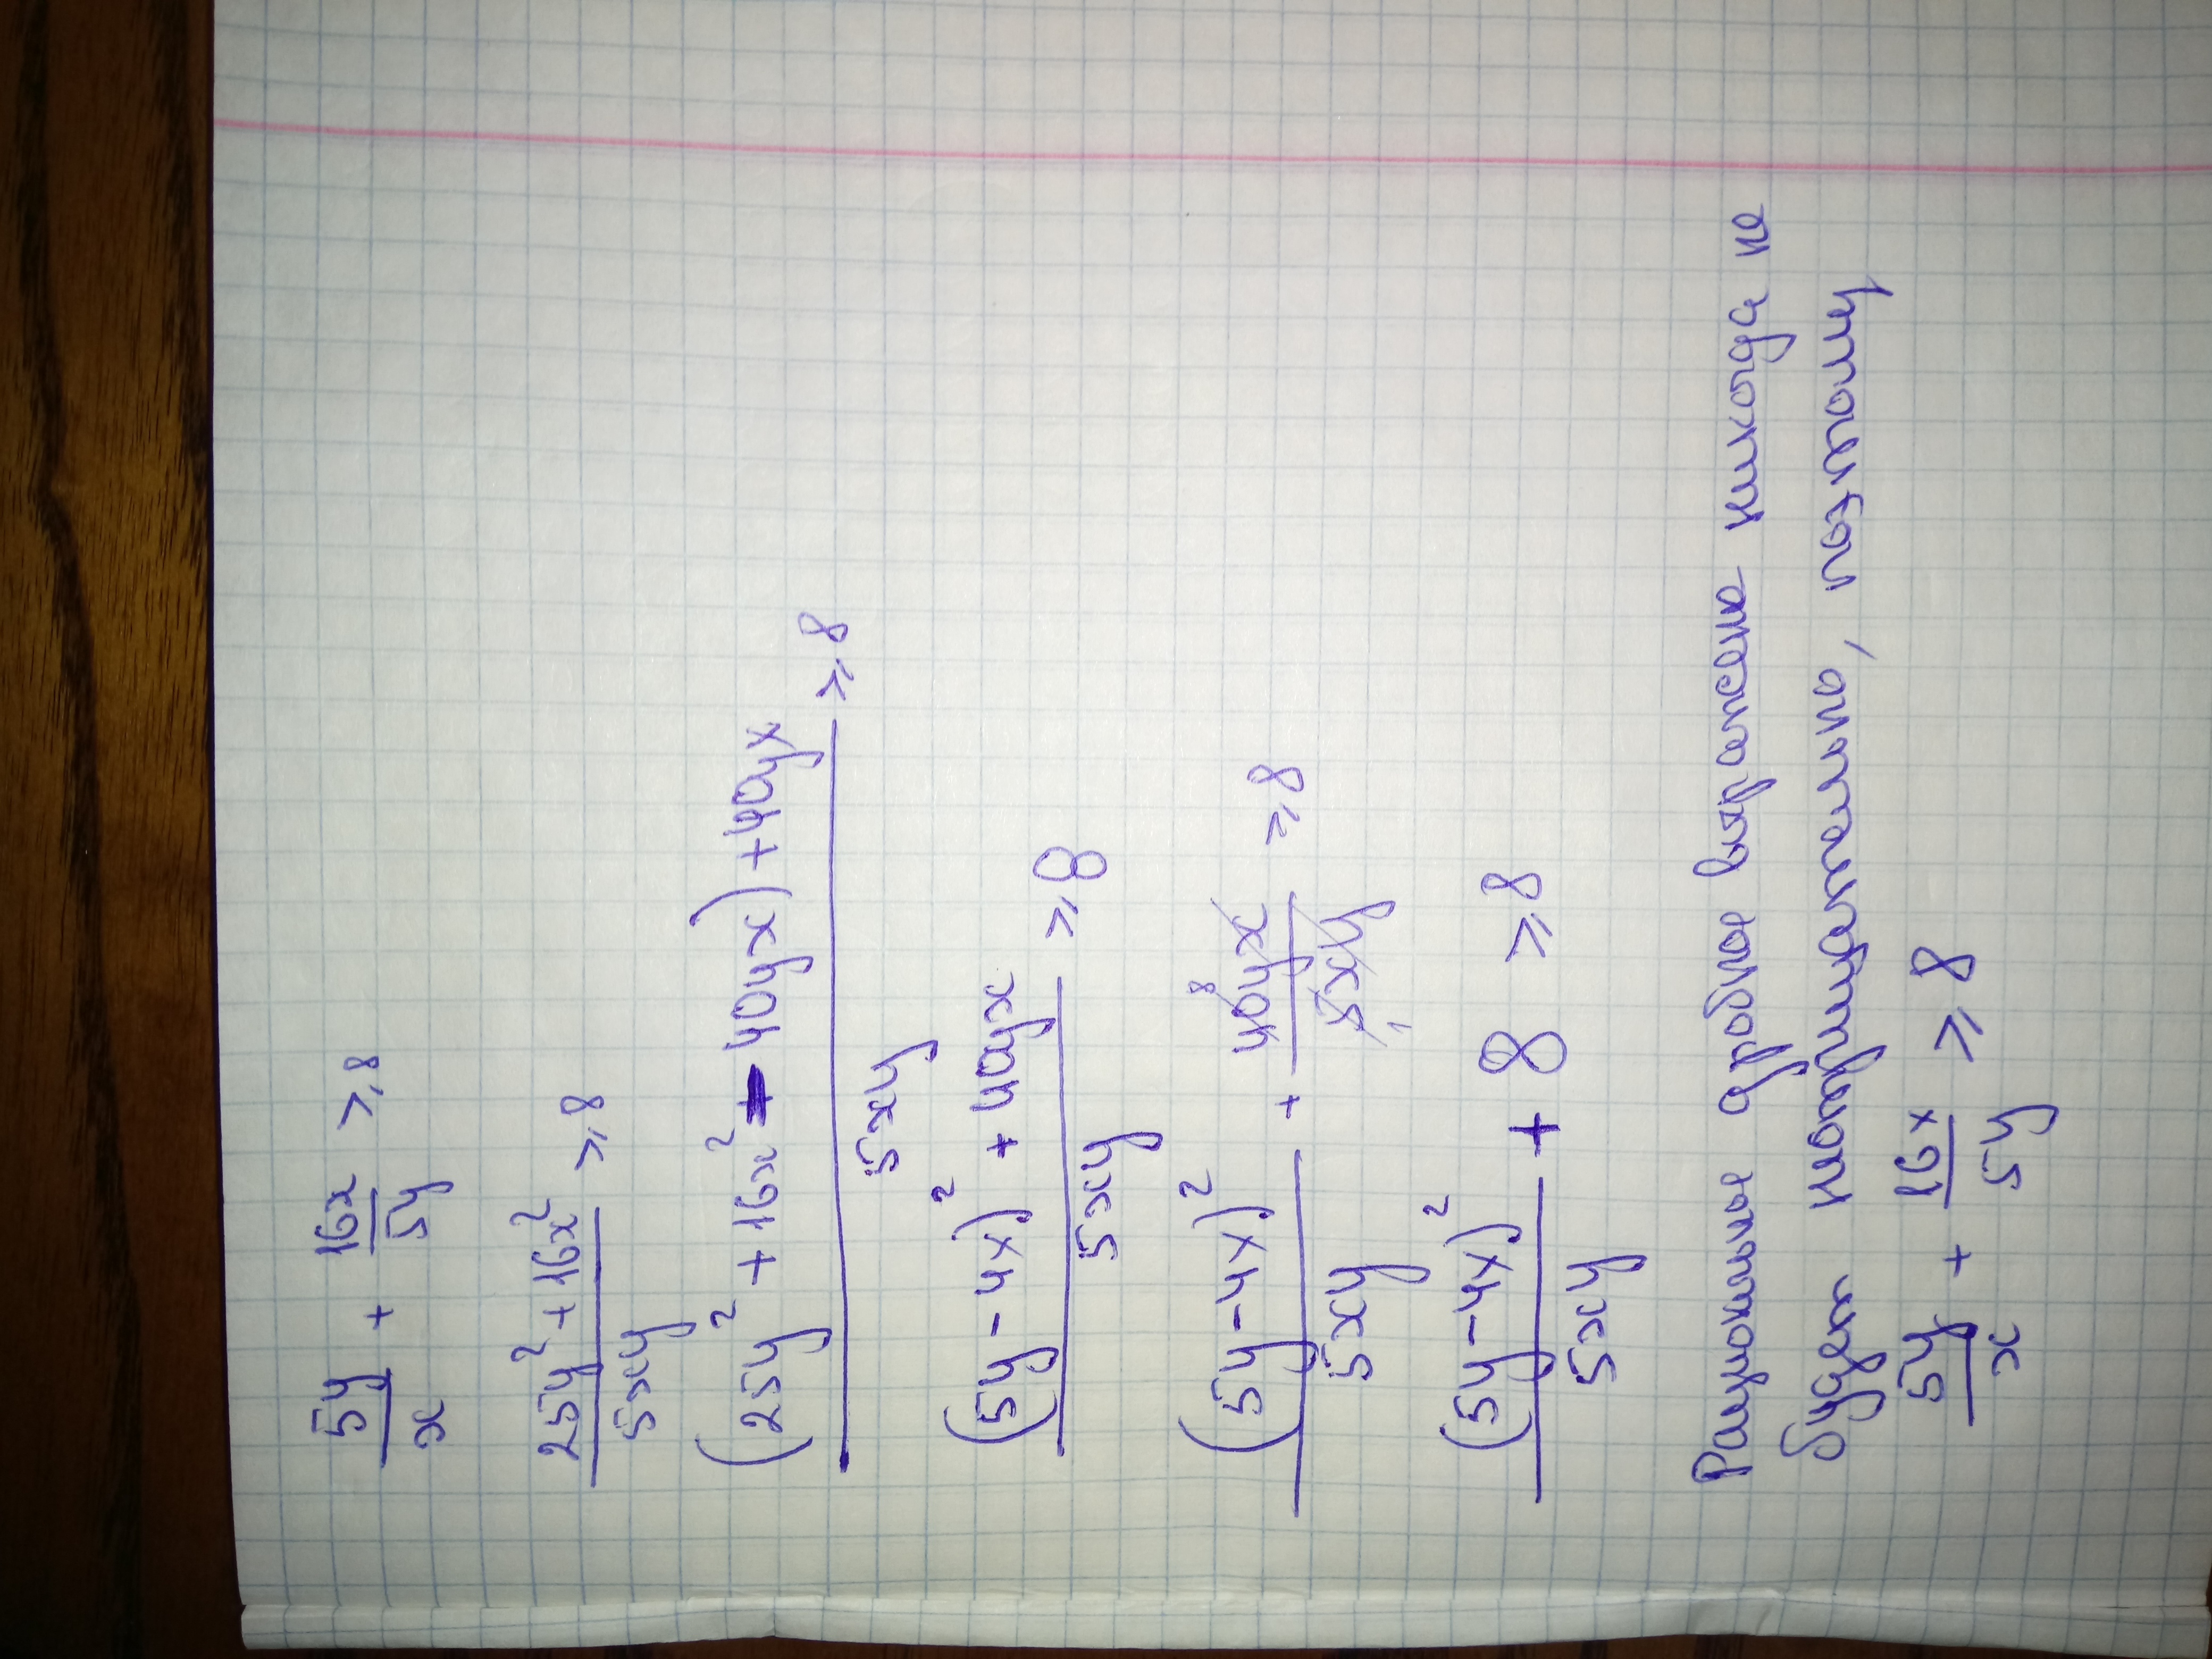 5y/x + 16x/5y ⩾ 8
25y² + 16x² / 5xy ⩾ 8
(25y² + 16x² - 40yx) + 40yx / 5xy ⩾ 8
(5y - 4x)² + 40yx / 5xy ⩾ 8
(5y - 4x)² / 5xy + 40yx 8 / 5xy 1 ⩾ 8
(5y - 4x)² / 5xy + 8 ⩾ 8
Рациональное дробное выражение никогда не
будет неотрицательно, поэтому
5y/x + 16x/5y ⩾ 8